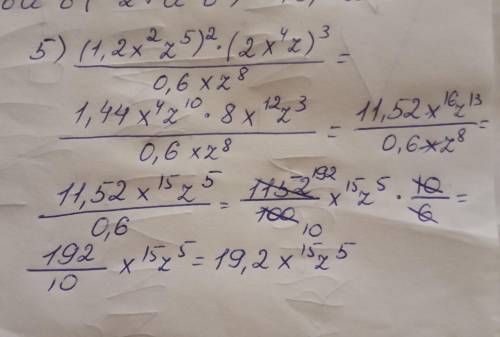 5) (1,2x²z⁵)²·(2x⁴z)³ / 0,6xz⁸ =
1,44x⁴z¹⁰·8x¹²z³ / 0,6xz⁸ = 11,52x¹⁶z¹³ / 0,6xz⁸ =
11,52x¹⁵z⁵ / 0,6 = 1152 192 / 100 10 x¹⁵z⁵ · 10 / 6 =
192 / 10 x¹⁵z⁵ = 19,2x¹⁵z⁵